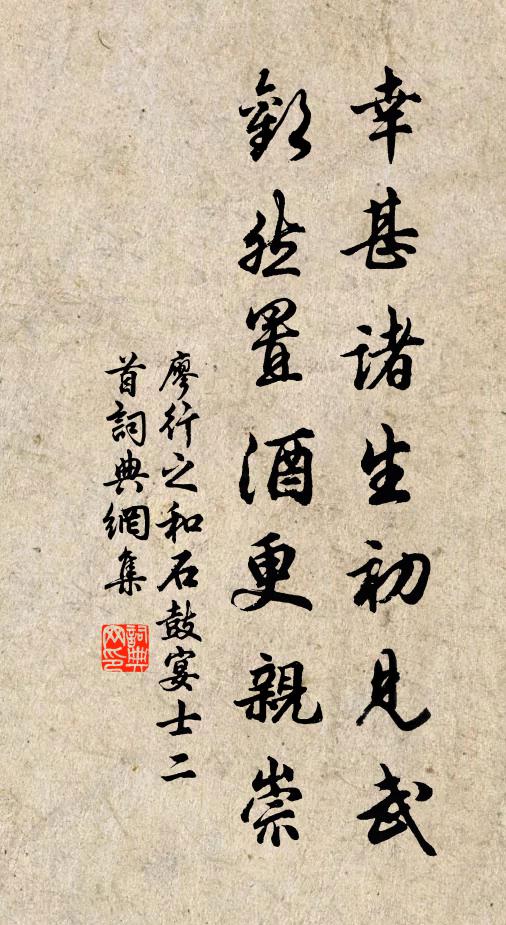 幸甚諸生初見武
歡然置酒更親崇
廖行之和石鼓宴士二
首詞典網集
詞典網印